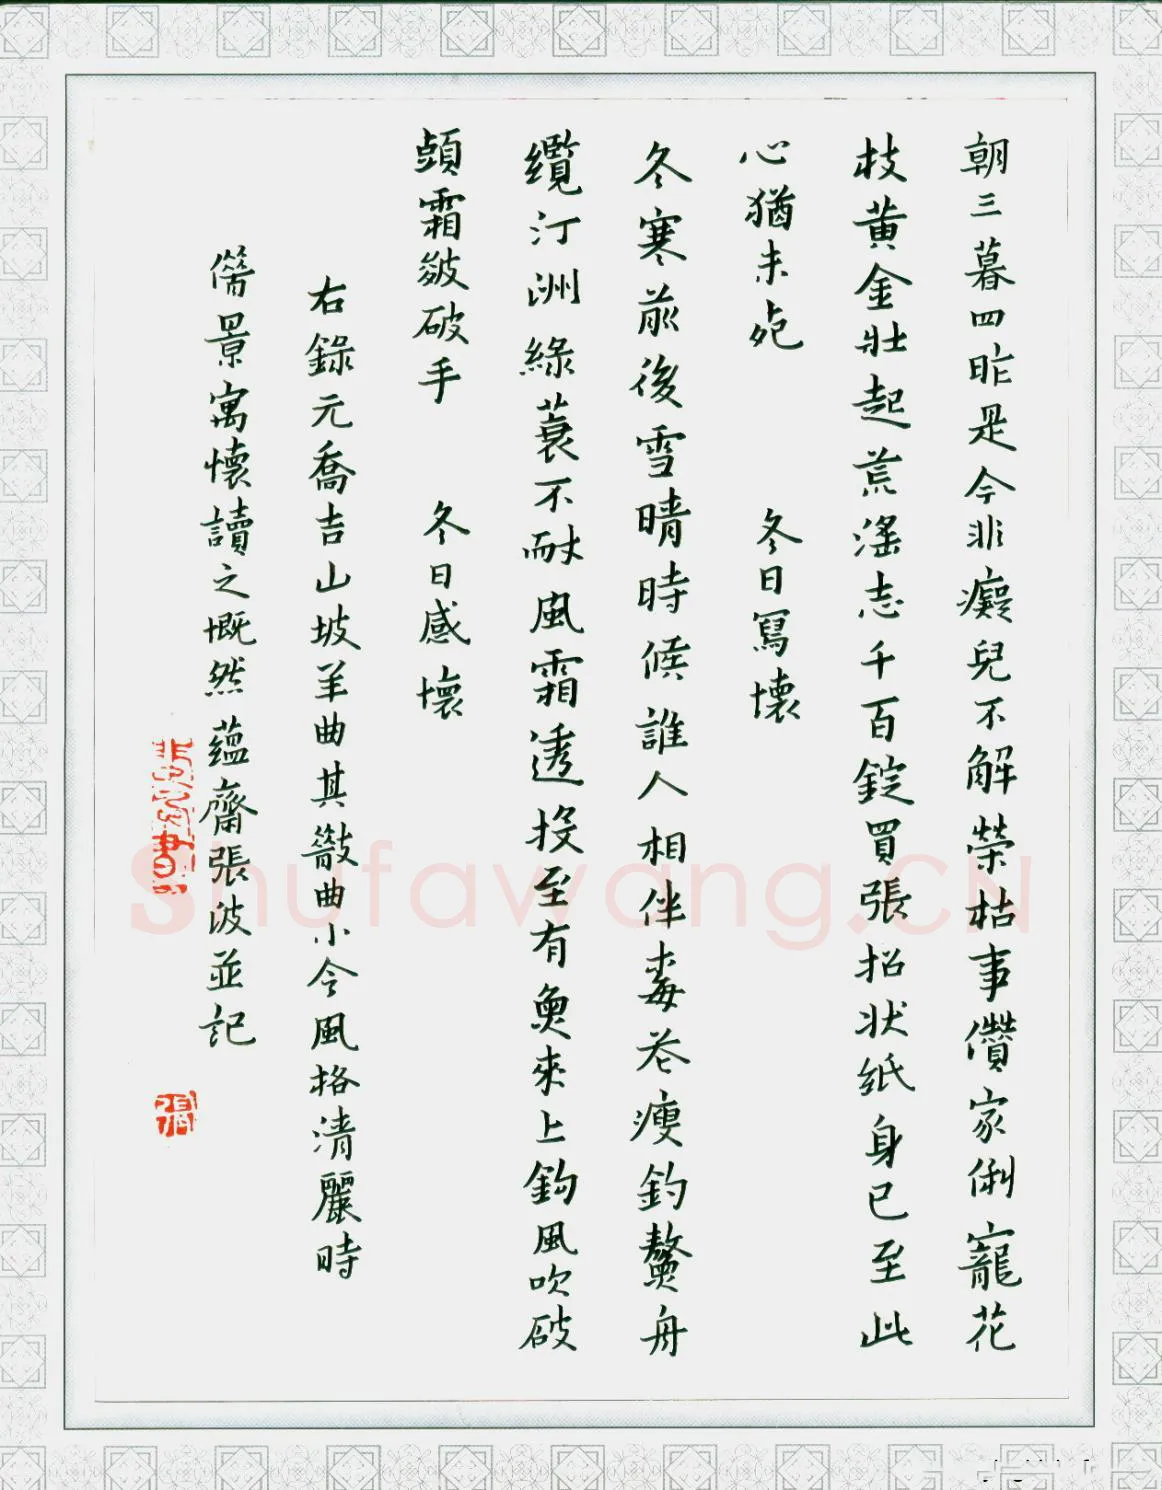 朝三暮四昨是今非癡兒不解榮枯事儹家俬寵花
枝黃金壯起荒滛志千百錠買張招狀紙身已至此
心猶未死
冬日寫懷
冬寒前後雪晴時候誰人相伴梅花瘦釣鰲舟
纜汀洲綠蓑不耐風霜透投至有魚來上鈎風吹破
頭霜皴破手
冬日感懷
右錄元喬吉山坡羊曲其散曲小令風格清麗時
借景寓懷讀之慨然蘊齋張波並記
張
Shufawang.CN